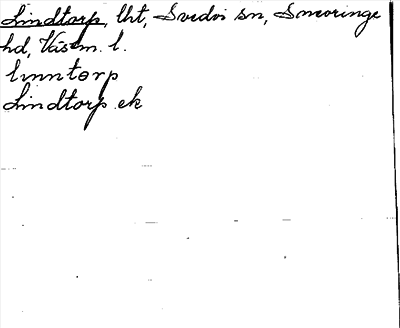 Lindtorp, lht, Svedvi sn, Snevringe
hd, Västm. l.
linntorp
Lindtorp ek